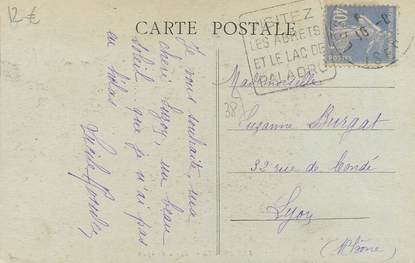 12 €
CARTE POSTALE
VISITEZ
LES ABRETS
ET LE LAC DE
PALADRU
40c
POSTES
38
Je vous souhaite, ma
chère Suzon, un beau
soleil que je n'ai pas
au
Mademoiselle
Suzanne Burgat
32 rue de Condé
Lyon
(Rhône)